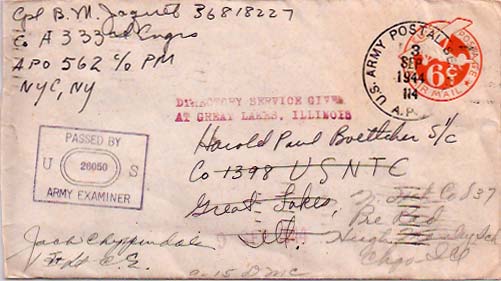 Cpl B. M. Jaquet 36818227
Co A 333rd Engrs
APO 562 c/o PM
NYC, NY
U.S. ARMY POSTAL
3
SEP
1944
A.P.
POSTAGE
6¢
AIR MAIL
DIRECTORY SERVICE GIVEN
AT GREAT LAKES, ILLINOIS
PASSED BY
U 26050 S
ARMY EXAMINER
Harold Paul Boettcher S/c
Co 1398 USNTC
Great Lakes,
Ill.
Jack Chippendale